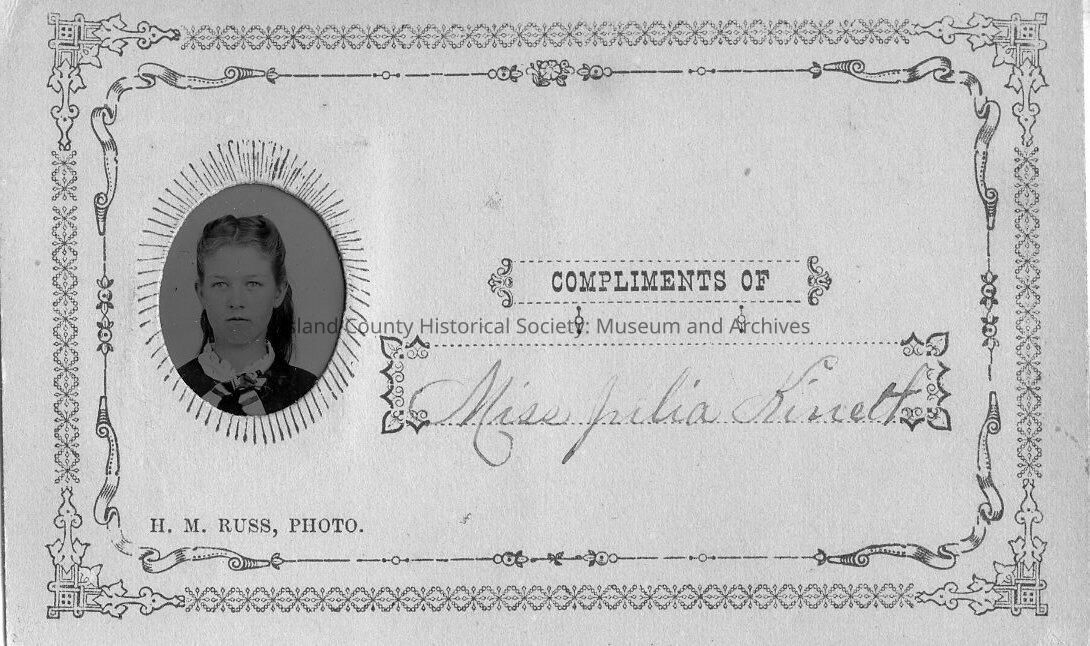 COMPLIMENTS OF
Island County Historical Society: Museum and Archives
Miss Julia Kinett
H. M. RUSS, PHOTO.